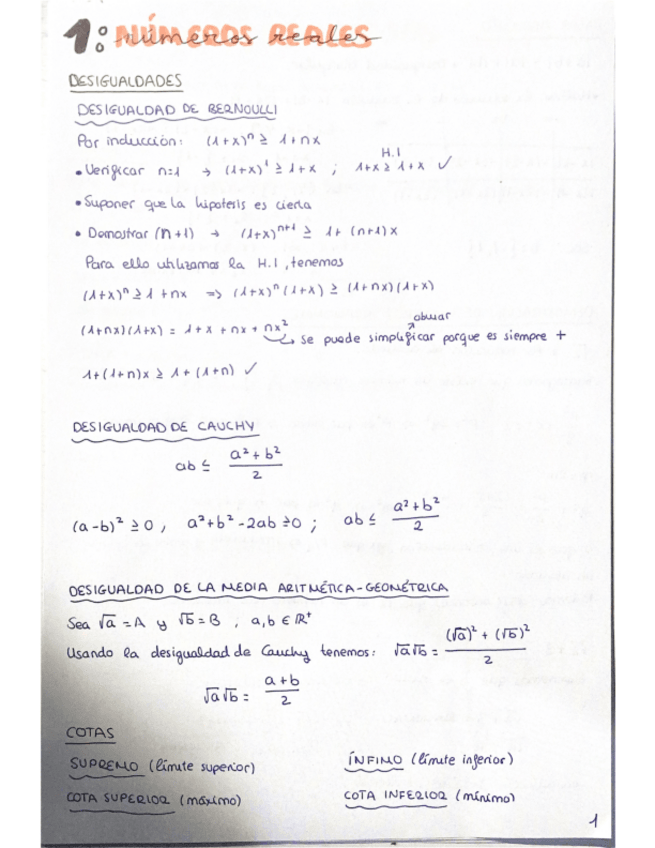 1: NÚMEROS REALES
números reales
DESIGUALDADES
DESIGUALDAD DE BERNOULLI
Por inducción: (1+x)ⁿ ≥ 1+nx
• Verificar n=1 → (1+x)¹ ≥ 1+x ; 1+x ≥ 1+x ✓
H.I
• Suponer que la hipótesis es cierta
• Demostrar (n+1) → (1+x)ⁿ⁺¹ ≥ 1+ (n+1)x
Para ello utilizamos la H.I, tenemos
(1+x)ⁿ ≥ 1+nx => (1+x)ⁿ(1+x) ≥ (1+nx)(1+x)
(1+nx)(1+x) = 1+x+nx+nx²
obviar
Se puede simplificar porque es siempre +
1+(1+n)x ≥ 1+(1+n) ✓
DESIGUALDAD DE CAUCHY
ab ≤ (a²+b²)/2
(a-b)² ≥ 0, a²+b²-2ab ≥ 0; ab ≤ (a²+b²)/2
DESIGUALDAD DE LA MEDIA ARITMÉTICA-GEOMÉTRICA
Sea √a = A y √b = B ; a,b ∈ ℝ⁺
Usando la desigualdad de Cauchy tenemos: √a√b = ((√a)² + (√b)²)/2
√a√b = (a+b)/2
COTAS
SUPREMO (límite superior) ÍNFIMO (límite inferior)
COTA SUPERIOR (máximo) COTA INFERIOR (mínimo)
1